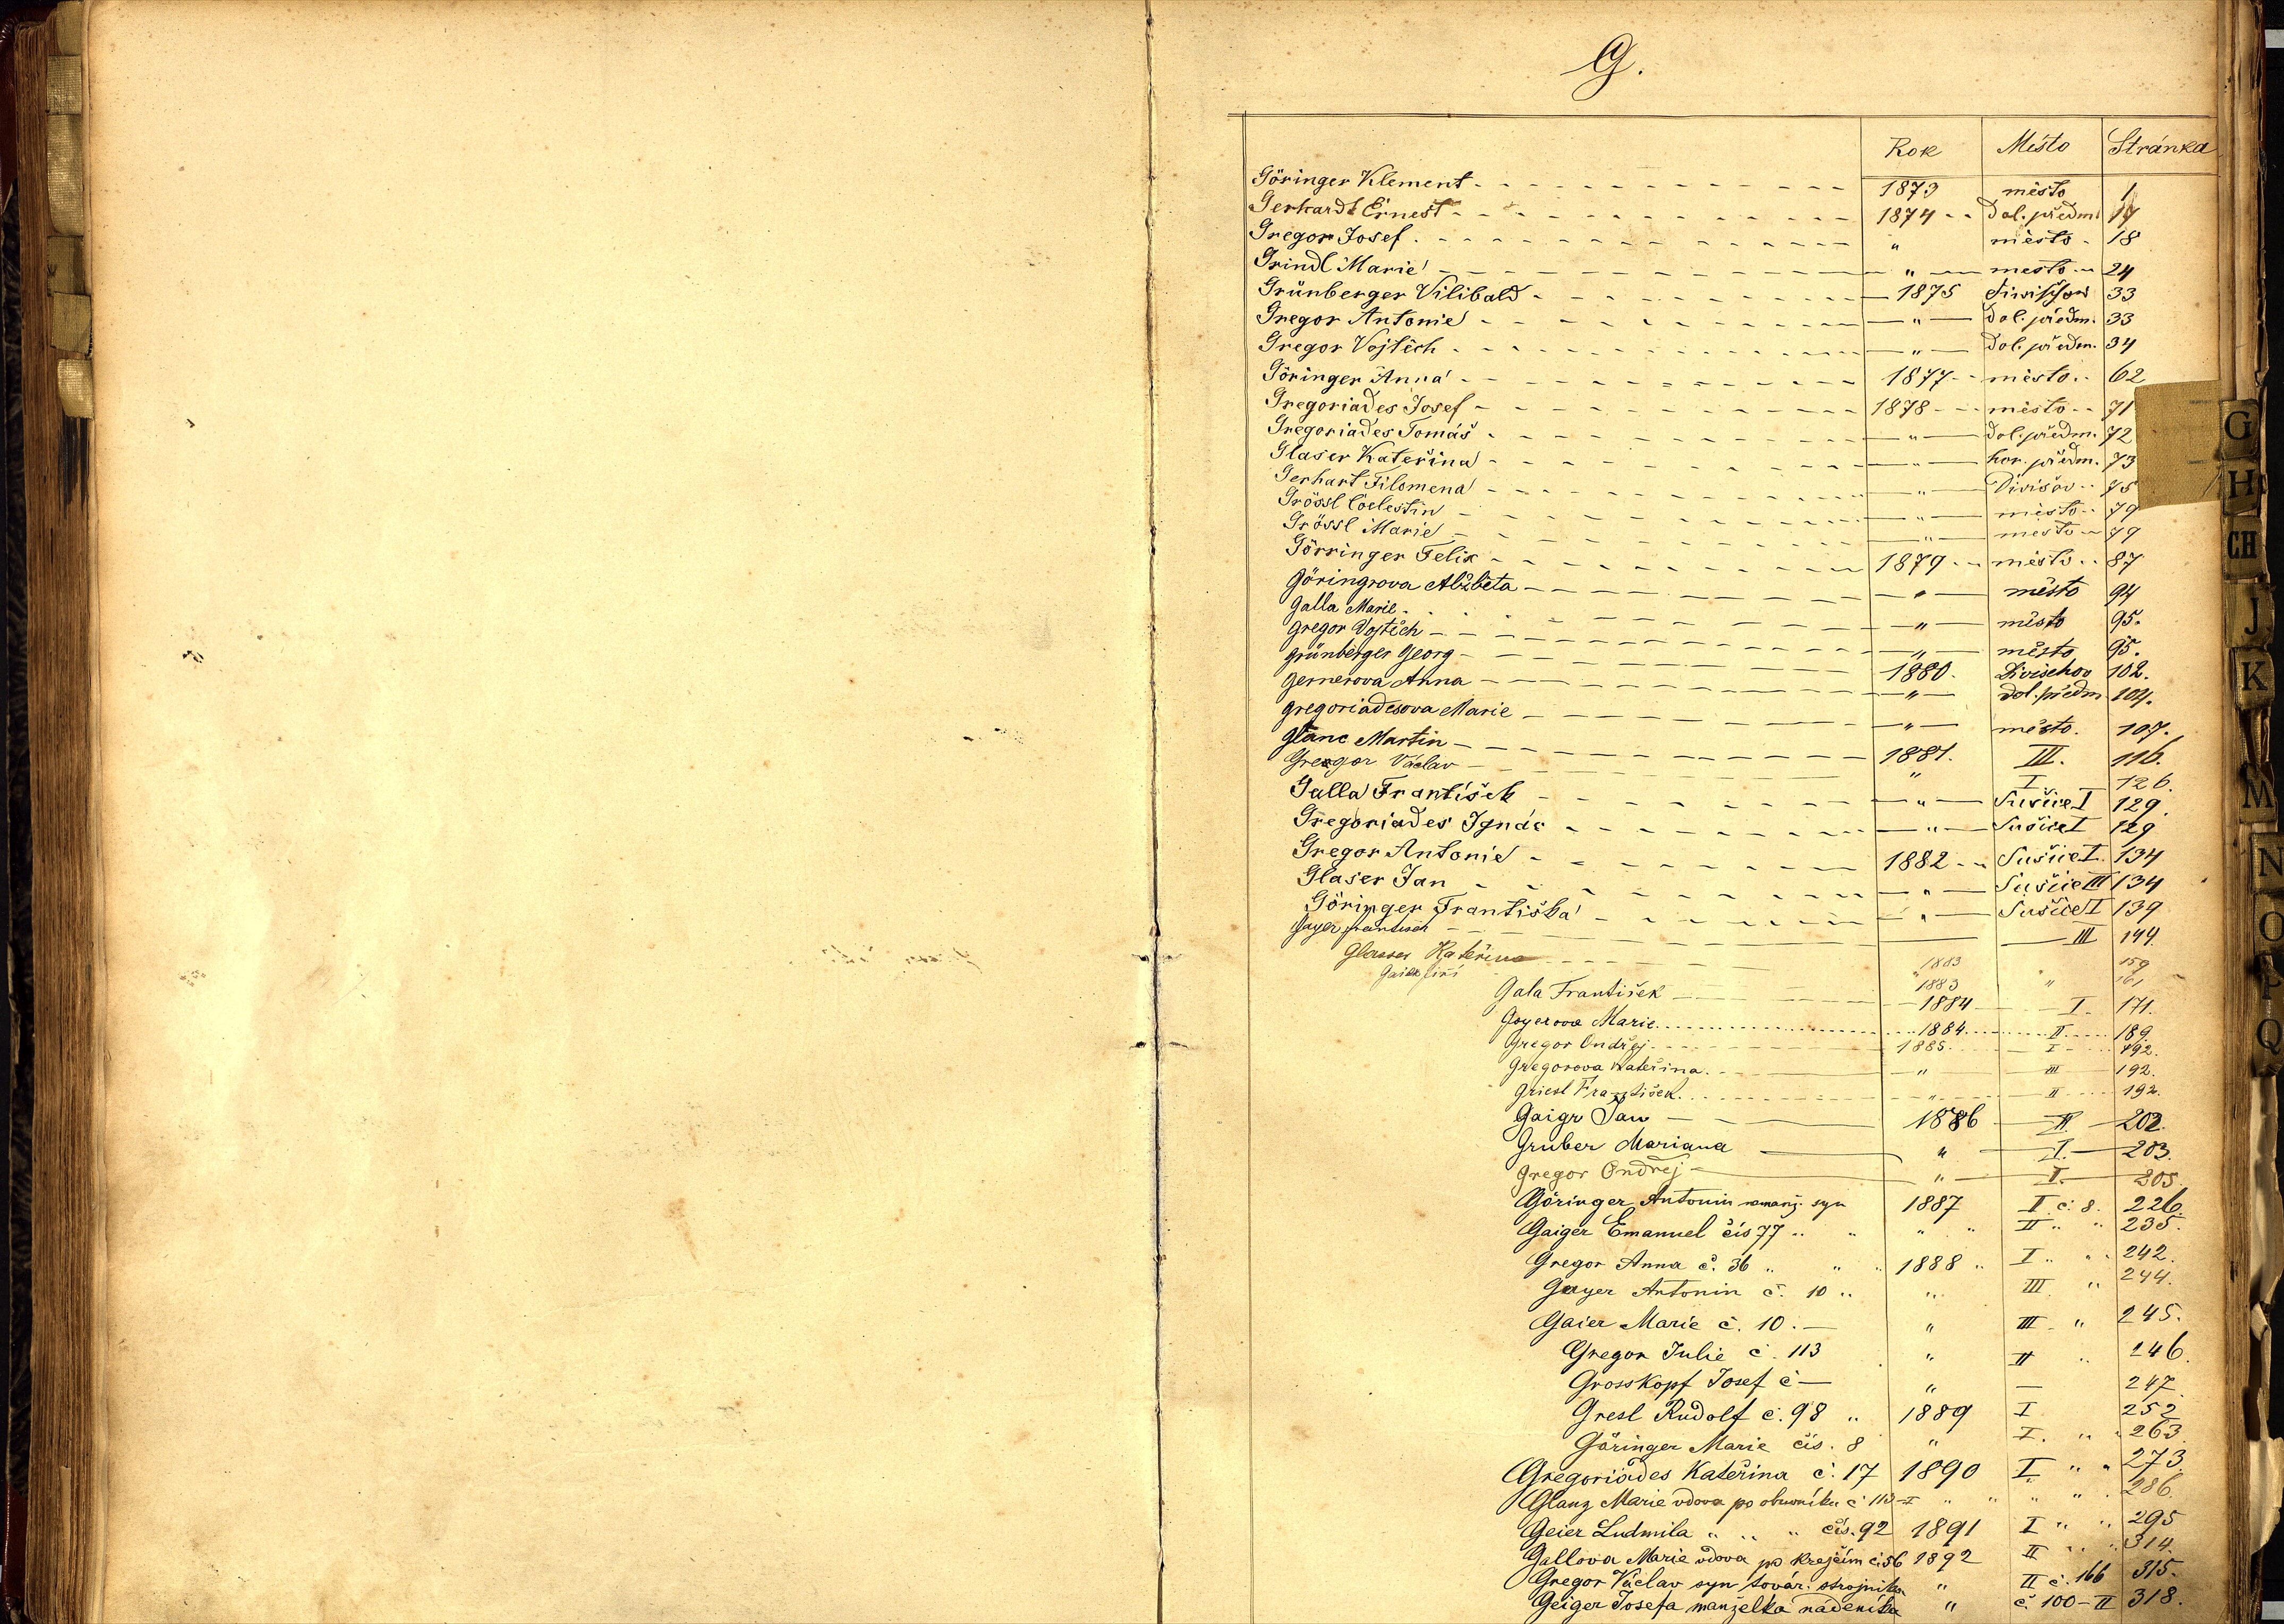 G.
Rok Město Stránka
Göringer Klement 1873 město 1
Gerhardt Ernest 1874 dol. předm. 17
Gregor Josef " město 18
Grindl Marie " město 24
Grünberger Vilibald 1875 33
Gregor Antonie " dol. předm. 33
Gregor Vojtěch " dol. předm. 34
Göringer Anna 1877 město 62
Gregoriades Josef 1878 město 71
Gregoriades Tomáš " dol. předm. 72
Glaser Kateřina " hor. předm. 73
Gerhart Filomena " Divišov 75
Grössl Coelestin " město 79
Grössl Marie " město 79
Görringer Felix 1879 město 87
Göringrova Alžběta " město 94
Galla Marie " město 95.
Gregor Vojtěch " město 95.
Grünberger Georg 1880. Divischov 102.
Gernerova Anna " dol. předm 104.
Gregoriadesova Marie " město. 107.
Glanc Martin 1881. III. 116.
Gregor Václav " I 126.
Galla František " Sušice I 129.
Gregoriades Ignác " Sušice I 129
Gregor Antonie 1882 Sušice I. 134
Glaser Jan " Sušice III 134
Göringer Františka " Sušice I 139
Gayer František III 144.
Glasser Kateřina 1883 " 159
Jiří 1883 " 161
Gala František 1884 I. 171.
Gayerova Marie 1884 II 189.
Gregor Ondřej 1885. I 192.
Gregorova Kateřina. " III 192.
Griesl František. " II 192.
Gaigr Jan 1886 II. 202.
Gruber Mariana " I. 203.
Gregor Ondřej " I. 205.
Göringer Antonin nemanž. syn 1887 II č. 8. 226.
Gaiger Emanuel čís 77 " " " " II " " 235.
Gregor Anna č. 36 " " " 1888 " I " " 242.
Gayer Antonin č. 10 " " III. " 244.
Gaier Marie č. 10. — " III " 245.
Gregor Julie č. 113 " II " 246.
Grosskopf Josef č — " — 247.
Gresl Rudolf č. 98 " 1889 I 252
Göringer Marie čís. 8 " I. " " 263.
Gregoriades Kateřina č. 17 1890 I " " 273.
Glanz Marie vdova po obuvníku č 113-I " " " " 286.
Geier Ludmila " " " čís. 92 1891 I " " 295
Gallova Marie vdova po krejčím č. 56 1892 II " " 314.
Gregor Václav syn továr. strojníka " II č. 166 315.
Geiger Josefa manželka nadeníka " č. 100-II 318.
G
H
CH
J
K
M
N
O
P
Q